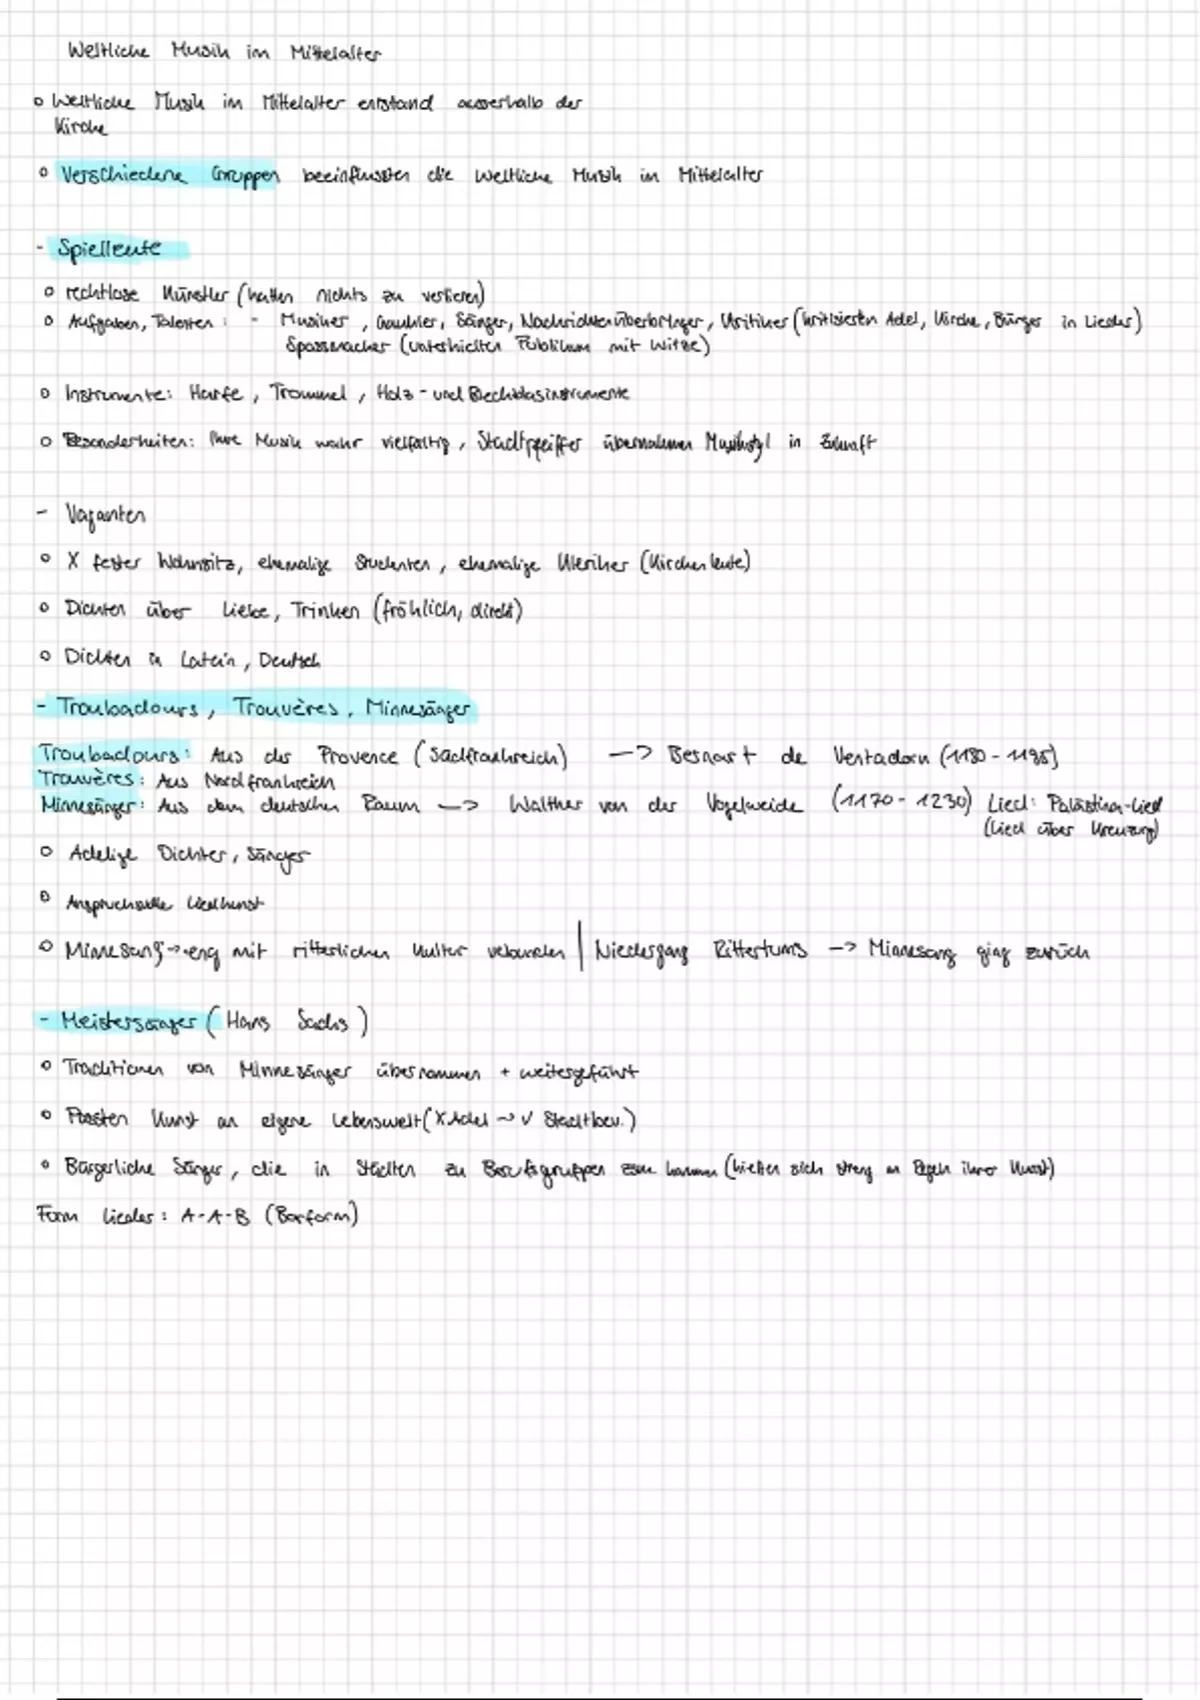 Weltliche Musik im Mittelalter
o Weltliche Musik im Mittelalter entstand ausserhalb der
Kirche
o Verschiedene Gruppen beeinflussten die weltliche Musik im Mittelalter
- Spielleute
o rechtlose Künstler (hatten nichts zu verlieren)
o Aufgaben, Talenten: - Musiker, Gaukler, Sänger, Nachrichtenüberbringer, Kritiker (kritisierten Adel, Kirche, Bürger in Lieder)
Spassmacher (unterhielten Publikum mit Witze)
o Instrumente: Harfe, Trommel, Holz- und Blechblasinstrumente
o Besonderheiten: Ihre Musik wahr vielfältig, Stadtpfeiffer übernahmen Musikstyl in Zukunft
- Vaganten
o X fester Wohnsitz, ehemalige Studenten, ehemalige Kleriker (Kirchenleute)
o Dichten über Liebe, Trinken (fröhlich, direkt)
o Dichten in Latein, Deutsch
- Troubadours, Trouvères, Minnesänger
Troubadours: Aus der Provence (Südfrankreich) -> Bernart de Ventadorn (1130 - 1195)
Trouvères: Aus Nordfrankreich
Minnesänger: Aus dem deutschen Raum -> Walther von der Vogelweide (1170 - 1230) Lied: Palästina-Lied
(Lied über Kreuzzug)
o Adelige Dichter, Sänger
o Anspruchsvolle Liedkunst
o Minnesang -> eng mit ritterlichen Kultur verbunden | Niedergang Rittertums -> Minnesang ging zurück
- Meistersänger (Hans Sachs)
o Traditionen von Minnesänger übernommen + weitergeführt
o Passten Kunst an eigene Lebenswelt (X Adel -> ✓ Stadtbev.)
o Bürgerliche Sänger, die in Städten zu Berufsgruppen zsm kamen (hielten sich streng an Regeln ihrer Kunst)
Form Lieder: A-A-B (Barform)